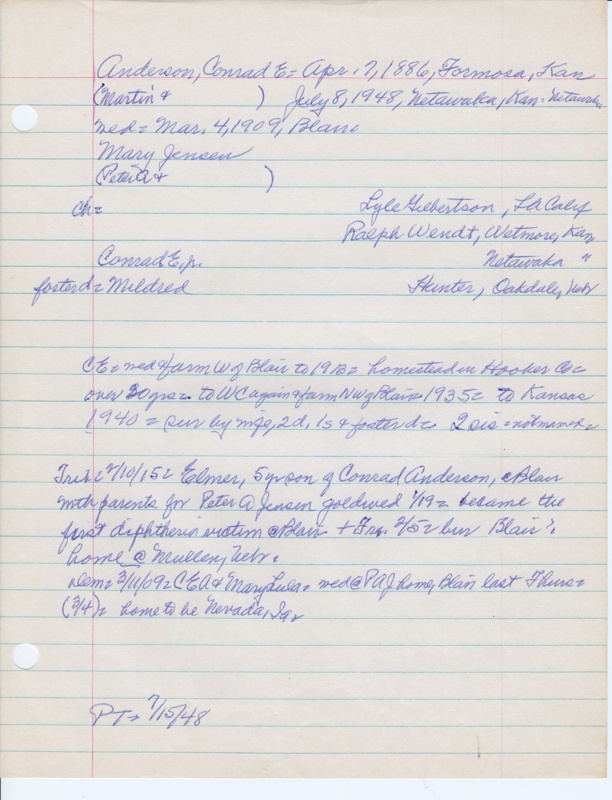 Anderson, Conrad E= Apr. 7, 1886, Formosa, Kan
(Martin & ) July 8, 1948, Netawaka, Kan= Netawaka
wed= Mar. 4, 1909, Blair=
Mary Jensen
(Peter A & )
ch= Lyle Gilbertson, LA Calif
Ralph Wendt, Wetmore, Kan
Conrad E, jr. Netawaka "
foster d= Mildred Hunter, Oakdale, Neb
CE= wed & farm W of Blair to 1913= homestead in Hooker Co=
over 20 yrs= to WC again & farm NW of Blair= 1935= to Kansas
1940= sur by wife, 2d, 1s & foster d= 2 sis= not named=
Trib= 2/10/15= Elmer, 5 yr son of Conrad Anderson, @ Blair
with parents for Peter A Jensen goldwed 1/19= became the
first diphtheria victim @ Blair + Fri. 2/5= bur Blair?
home @ Mullen, Neb=
Dem= 3/11/09= CEA & Mary = wed @ PAJ home, Blair last Thurs=
(3/4)= home to be Nevada, Ia=
PT= 7/15/48